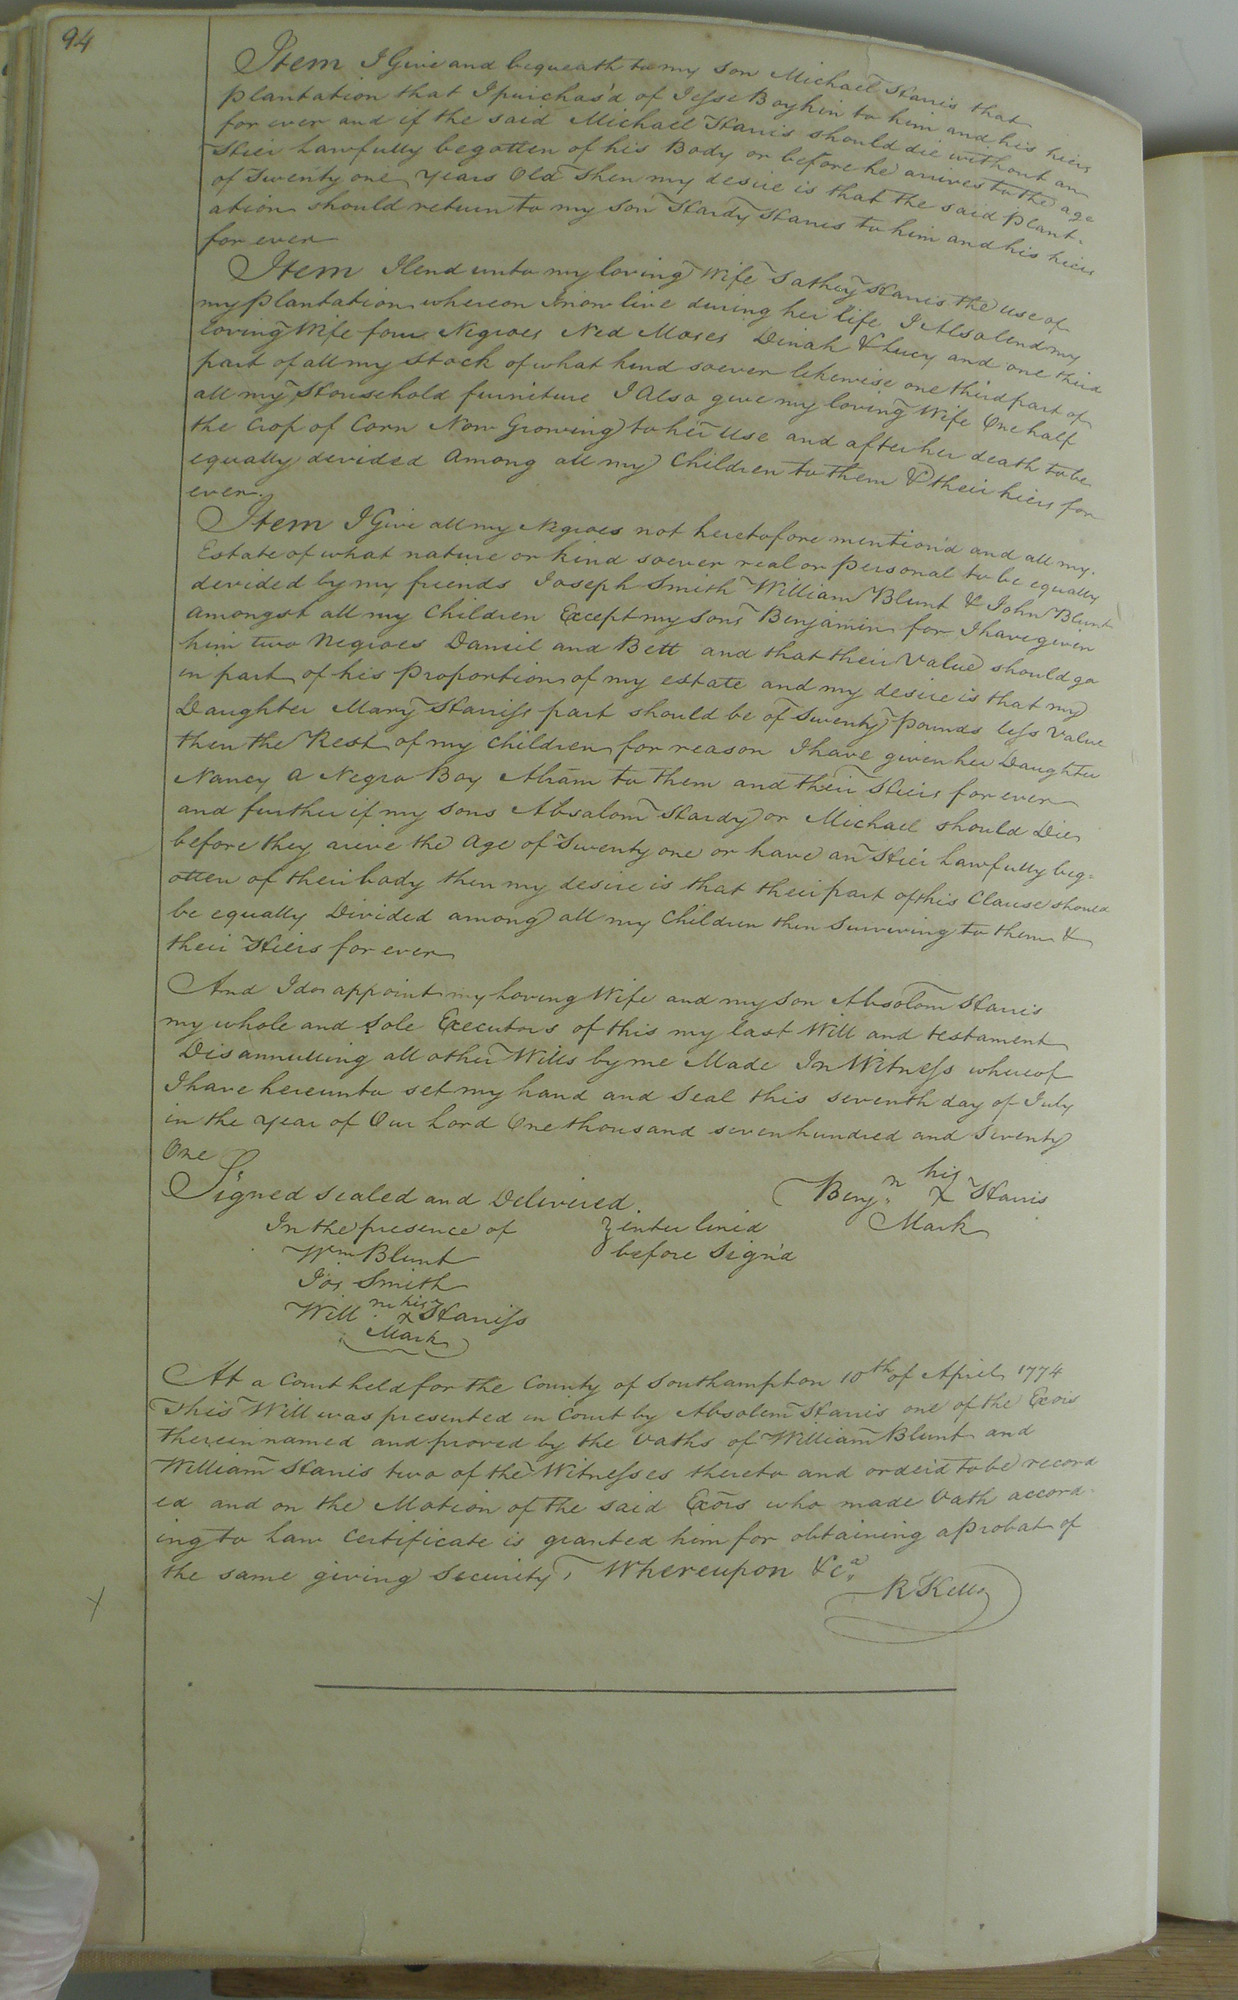 94
Item I Give and bequeath to my Son Michael Harris that
plantation that I purchas'd of Jesse Boykin to him and his heirs
for ever and if the said Michael Harris should die without an
Heir Lawfully begotten of his Body or before he arives to the age
of Twenty one Years Old Then my desire is that the said Plant-
ation should return to my Son Hardy Harris to him and his heirs
for ever
Item I lend unto my loving Wife Sathey Harris the use of
my plantation whereon I now live during her life I Also lend my
Loving Wife four Negroes Ned Moses Dinah & Lucy and one third
part of all my Stock of what kind soever likewise one third part of
all my Household furniture I Also give my loving Wife One half
the Crop of Corn Now Growing to her Use and after her death to be
equally divided Among all my Children to them & their heirs for
ever.
Item I Give all my Negroes not heretofore mention'd and all my
Estate of what nature or kind soever real or personal to be equally
devided by my friends Joseph Smith William Blunt & John Blunt
amongst all my Children Except my Son Benjamin for I have given
him two Negroes Daniel and Bett and that their Value should go
in part of his proportion of my estate and my desire is that my
Daughter Mary Harriss part should be of Twenty pounds less Value
then the Rest of my Children for reason I have given her Daughter
Nancy a Negro Boy Abram to them and their Heirs for ever
and further if my Sons Absalom Hardy or Michael should Die
before they arive the Age of Twenty one or have an Heir Lawfully beg=
otten of their body then my desire is that their part of this Clause should
be equally Divided among all my Children then Surviving to them &
their Heirs for ever
And I do appoint my Loving Wife and my Son Absolom Harris
my whole and Sole Executors of this my last Will and testament
Disannulling all other Wills by me Made In Witness whereof
I have hereunto set my hand and Seal this seventh day of July
in the Year of Our Lord One thousand seven hundred and Seventy
One
Signed Sealed and Delivered. Benjn. his X Harris
In the presence of } inter lined Mark
Wm Blunt before Sign'd
Jos Smith
Willm his X Harriss
Mark
At a Court held for the County of Southampton 10th of April 1774
This Will was presented in Court by Absolem Harris one of the Exors
therein named and proved by the Oaths of William Blunt and
William Harris two of the Witnesses thereto and order'd to be record
ed and on the Motion of the said Exors who made Oath accord-
ing to Law Certificate is granted him for obtaining a Probat of
the same giving Security, Whereupon &ca.
R Kello